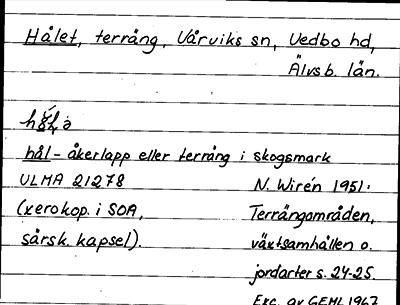 Hålet, terräng, Vårviks sn, Vedbo hd,
Älvsb. län.
hål - åkerlapp eller terräng i skogsmark
ULMA 21278 N. Wirén 1951.
(xerokop. i SOA, Terrängområden,
särsk. kapsel). växtsamhällen o.
jordarter s. 24-25.
Exc. av GEHL 1967